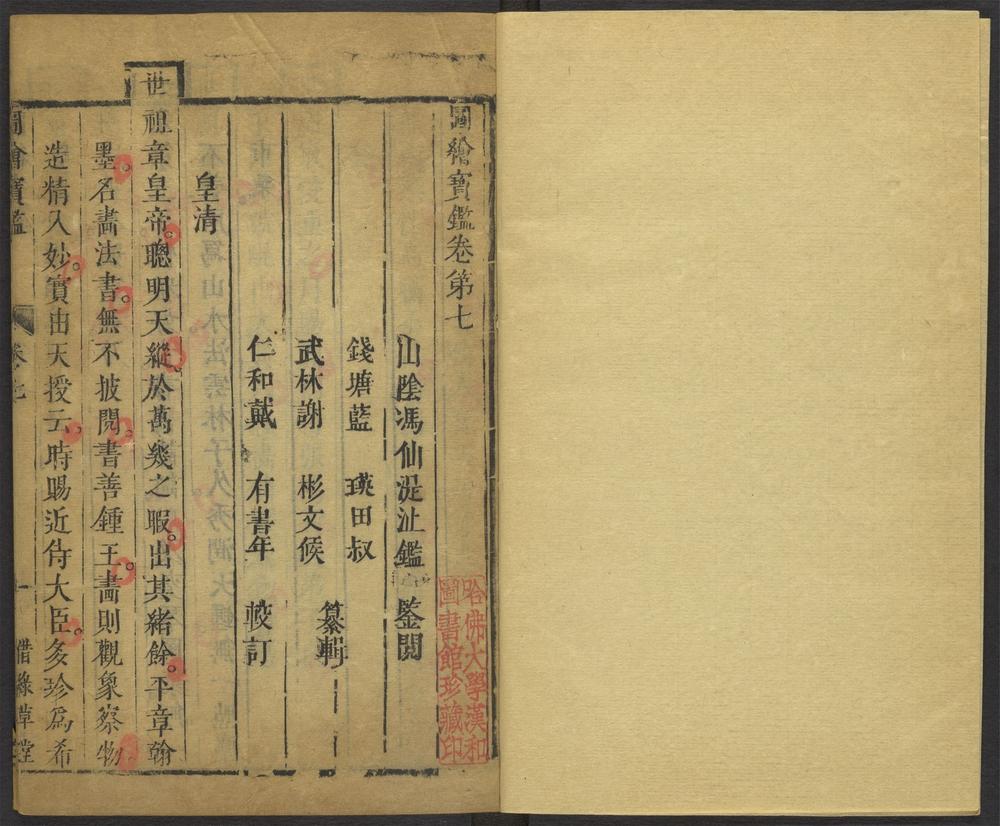 圖繪寶鑑卷第七
山陰馮仙湜沚鑑 鑒閱
錢塘藍 瑛田叔
武林謝 彬文侯 纂輯
仁和戴 有書年 較訂
皇清
世祖章皇帝。聰明天縱。於萬幾之暇。出其緒餘。平章翰
墨。名畵法書。無不披閱。書善鍾王。畵則觀象察物。
造精入妙。實由天授云。時賜近侍大臣。多珍爲希
圖繪寶鑑 卷七 一 借綠草堂
哈佛大學漢和
圖書館珍藏印